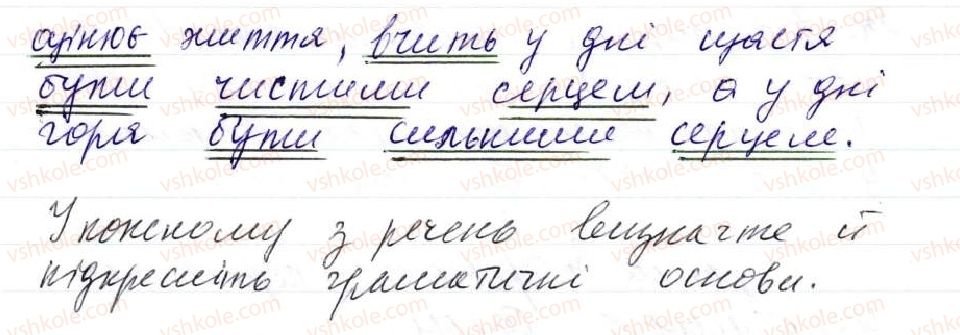 оцінює життя, вчить у дні щастя
бути чистими серцем, а у дні
горя бути сильними серцем.
У кожному з речень визначте й
підкресліть граматичні основи.